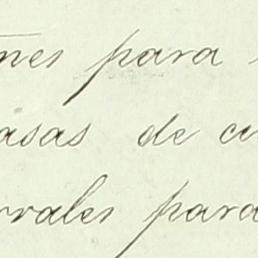 nes para
asas de cu
rrales para